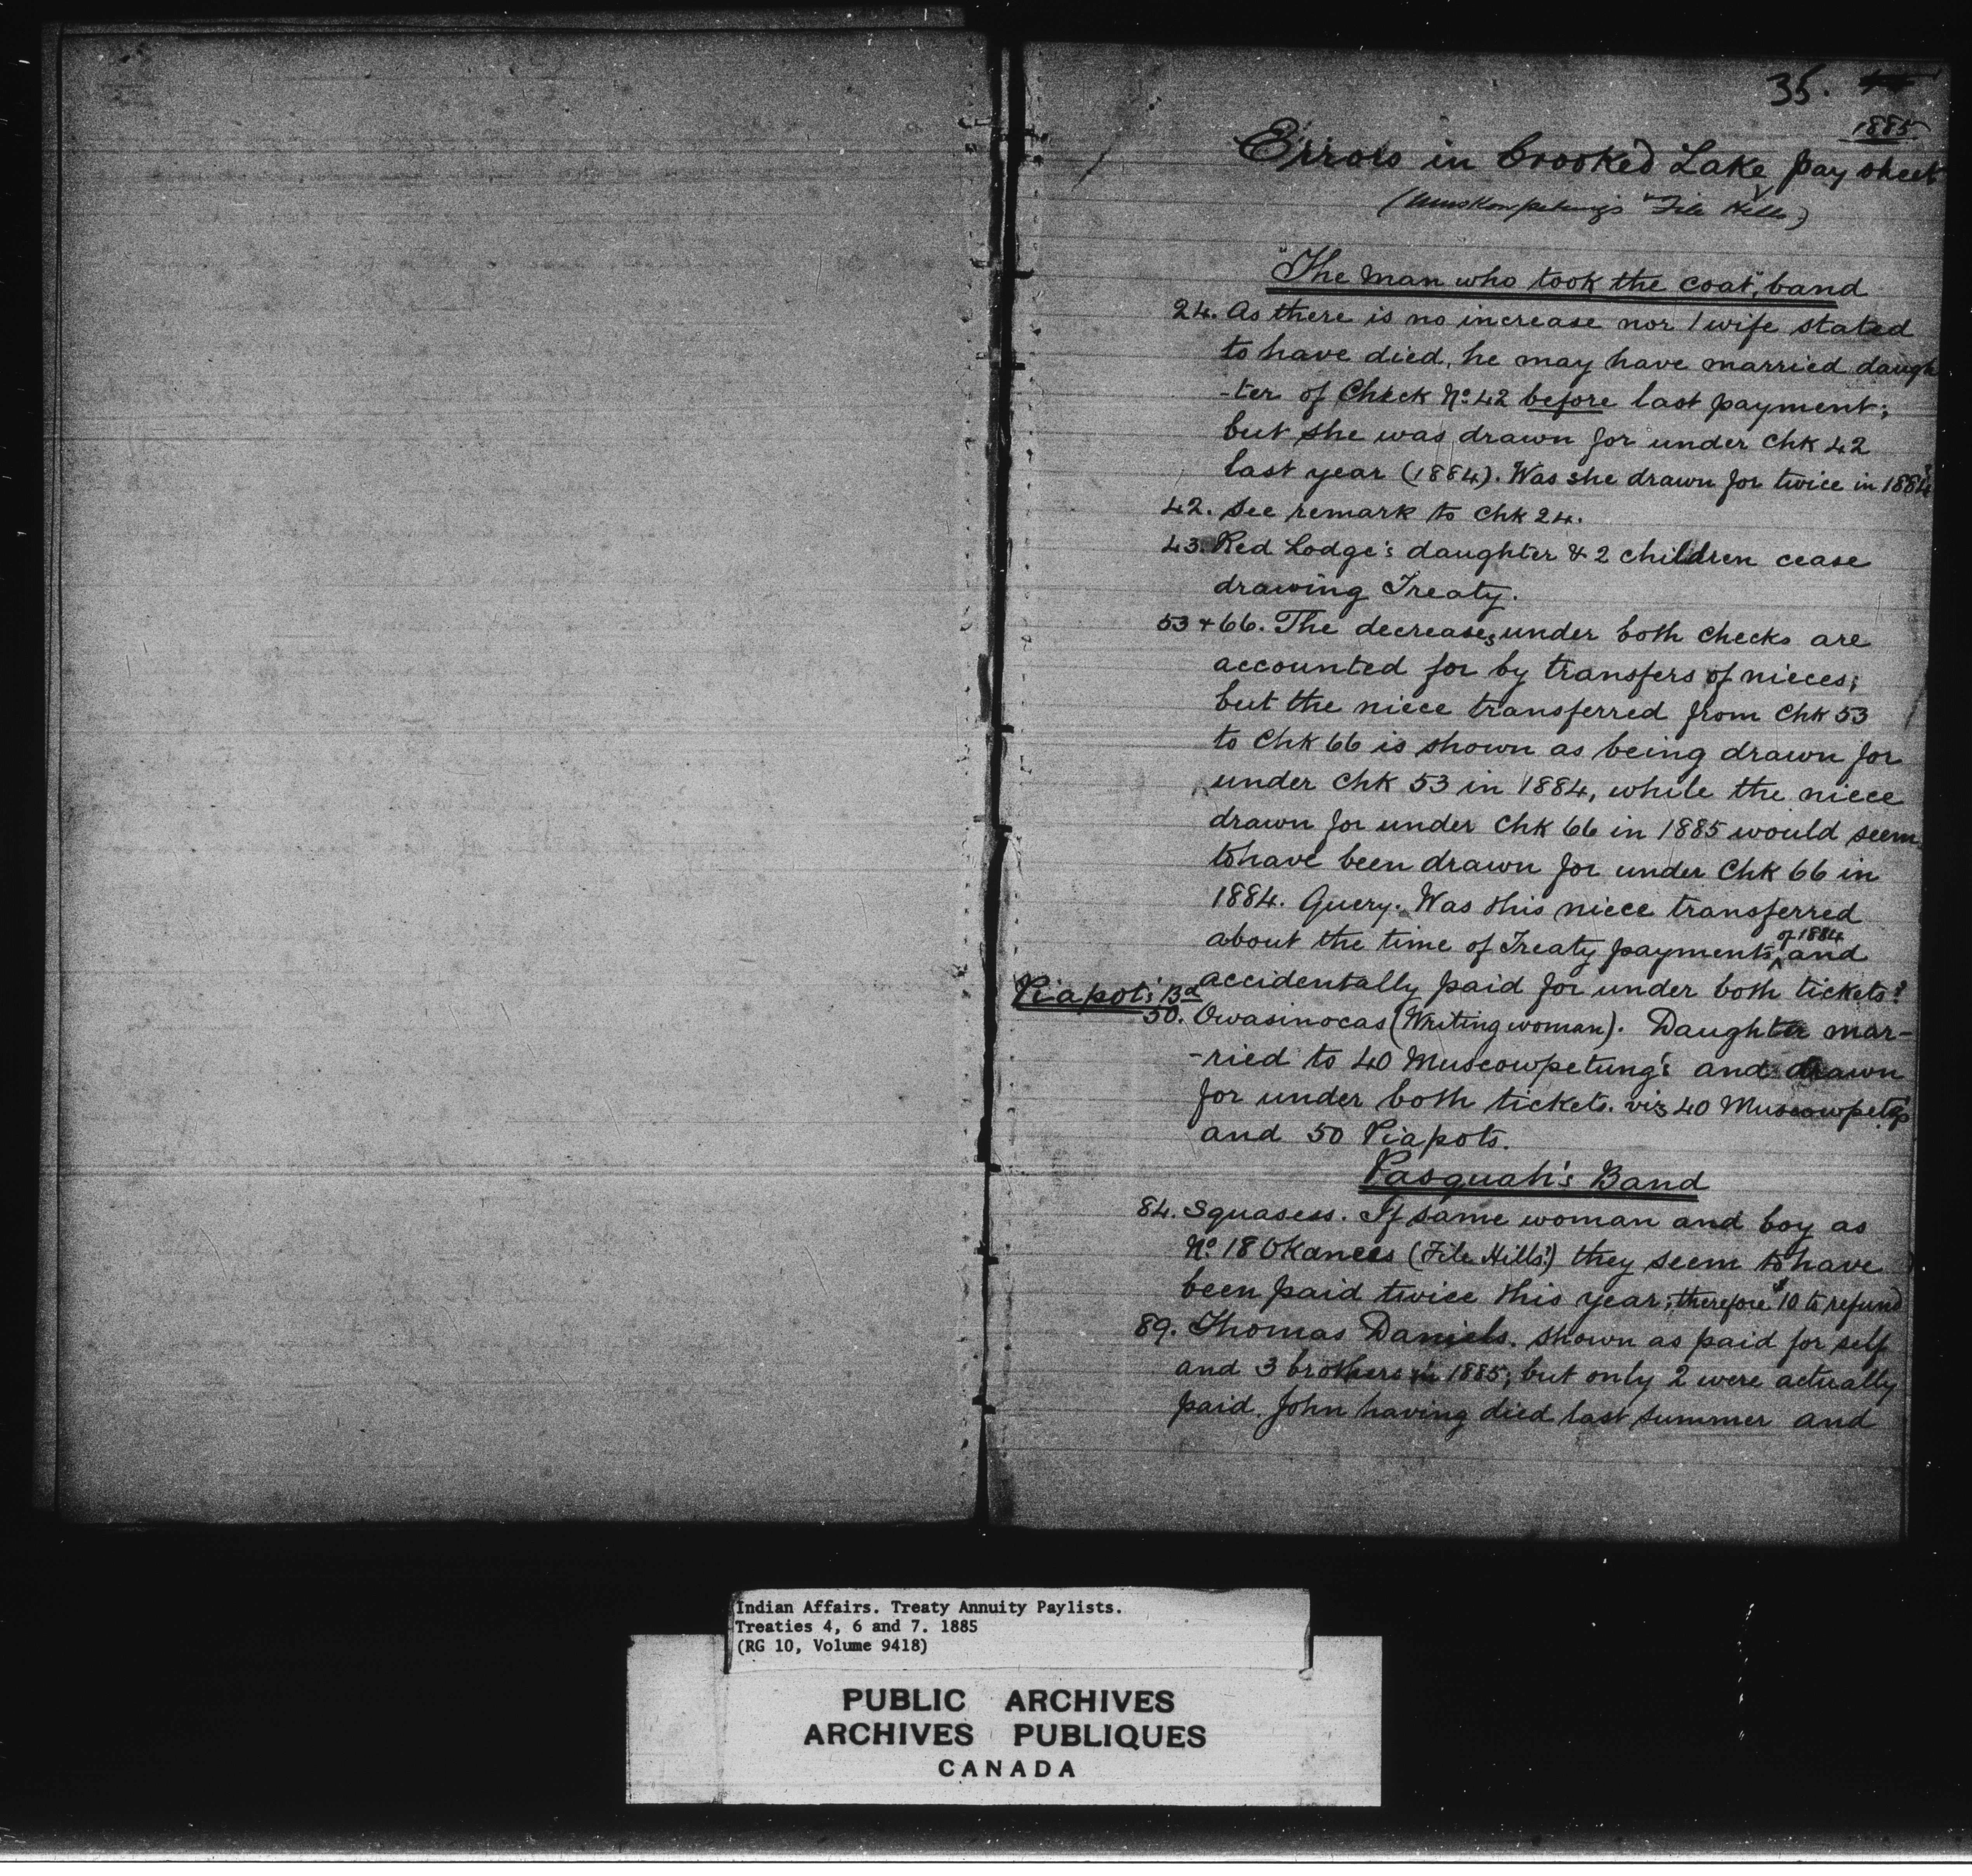 35.
1885
Errors in Crooked Lake pay sheet
(Muskowpetung's "File Hills)
"The man who took the coat", band
24. As there is no increase nor 1 wife stated
to have died, he may have married daugh
-ter of Check No. 42 before last payment;
but she was drawn for under Chk 42
last year (1884). Was she drawn for twice in 1884?
42. See remark to Chk 24.
43. Red Lodge's daughter & 2 children cease
drawing Treaty.
53 + 66. The decreases under both checks are
accounted for by transfers of nieces;
but the niece transferred from Chk 53
to Chk 66 is shown as being drawn for
under Chk 53 in 1884, while the niece
drawn for under Chk 66 in 1885 would seem
to have been drawn for under Chk 66 in
1884. Query. Was this niece transferred
about the time of Treaty payments of 1884 and
accidentally paid for under both tickets?
Piapot's Bd
50. Owasinocas (Writing woman). Daughter mar-
-ried to 40 Muscowpetung's and drawn
for under both tickets. viz 40 Muscowpetg's
and 50 Piapots.
Pasquah's Band
84. Squasess. If same woman and boy as
No. 18 Okanees (File Hills) they seem to have
been paid twice this year; therefore $10 to refund
89. Thomas Daniels. shown as paid for self
and 3 brothers in 1885; but only 2 were actually
paid. John having died last summer and
Indian Affairs. Treaty Annuity Paylists.
Treaties 4, 6 and 7. 1885
(RG 10, Volume 9418)
PUBLIC ARCHIVES
ARCHIVES PUBLIQUES
CANADA